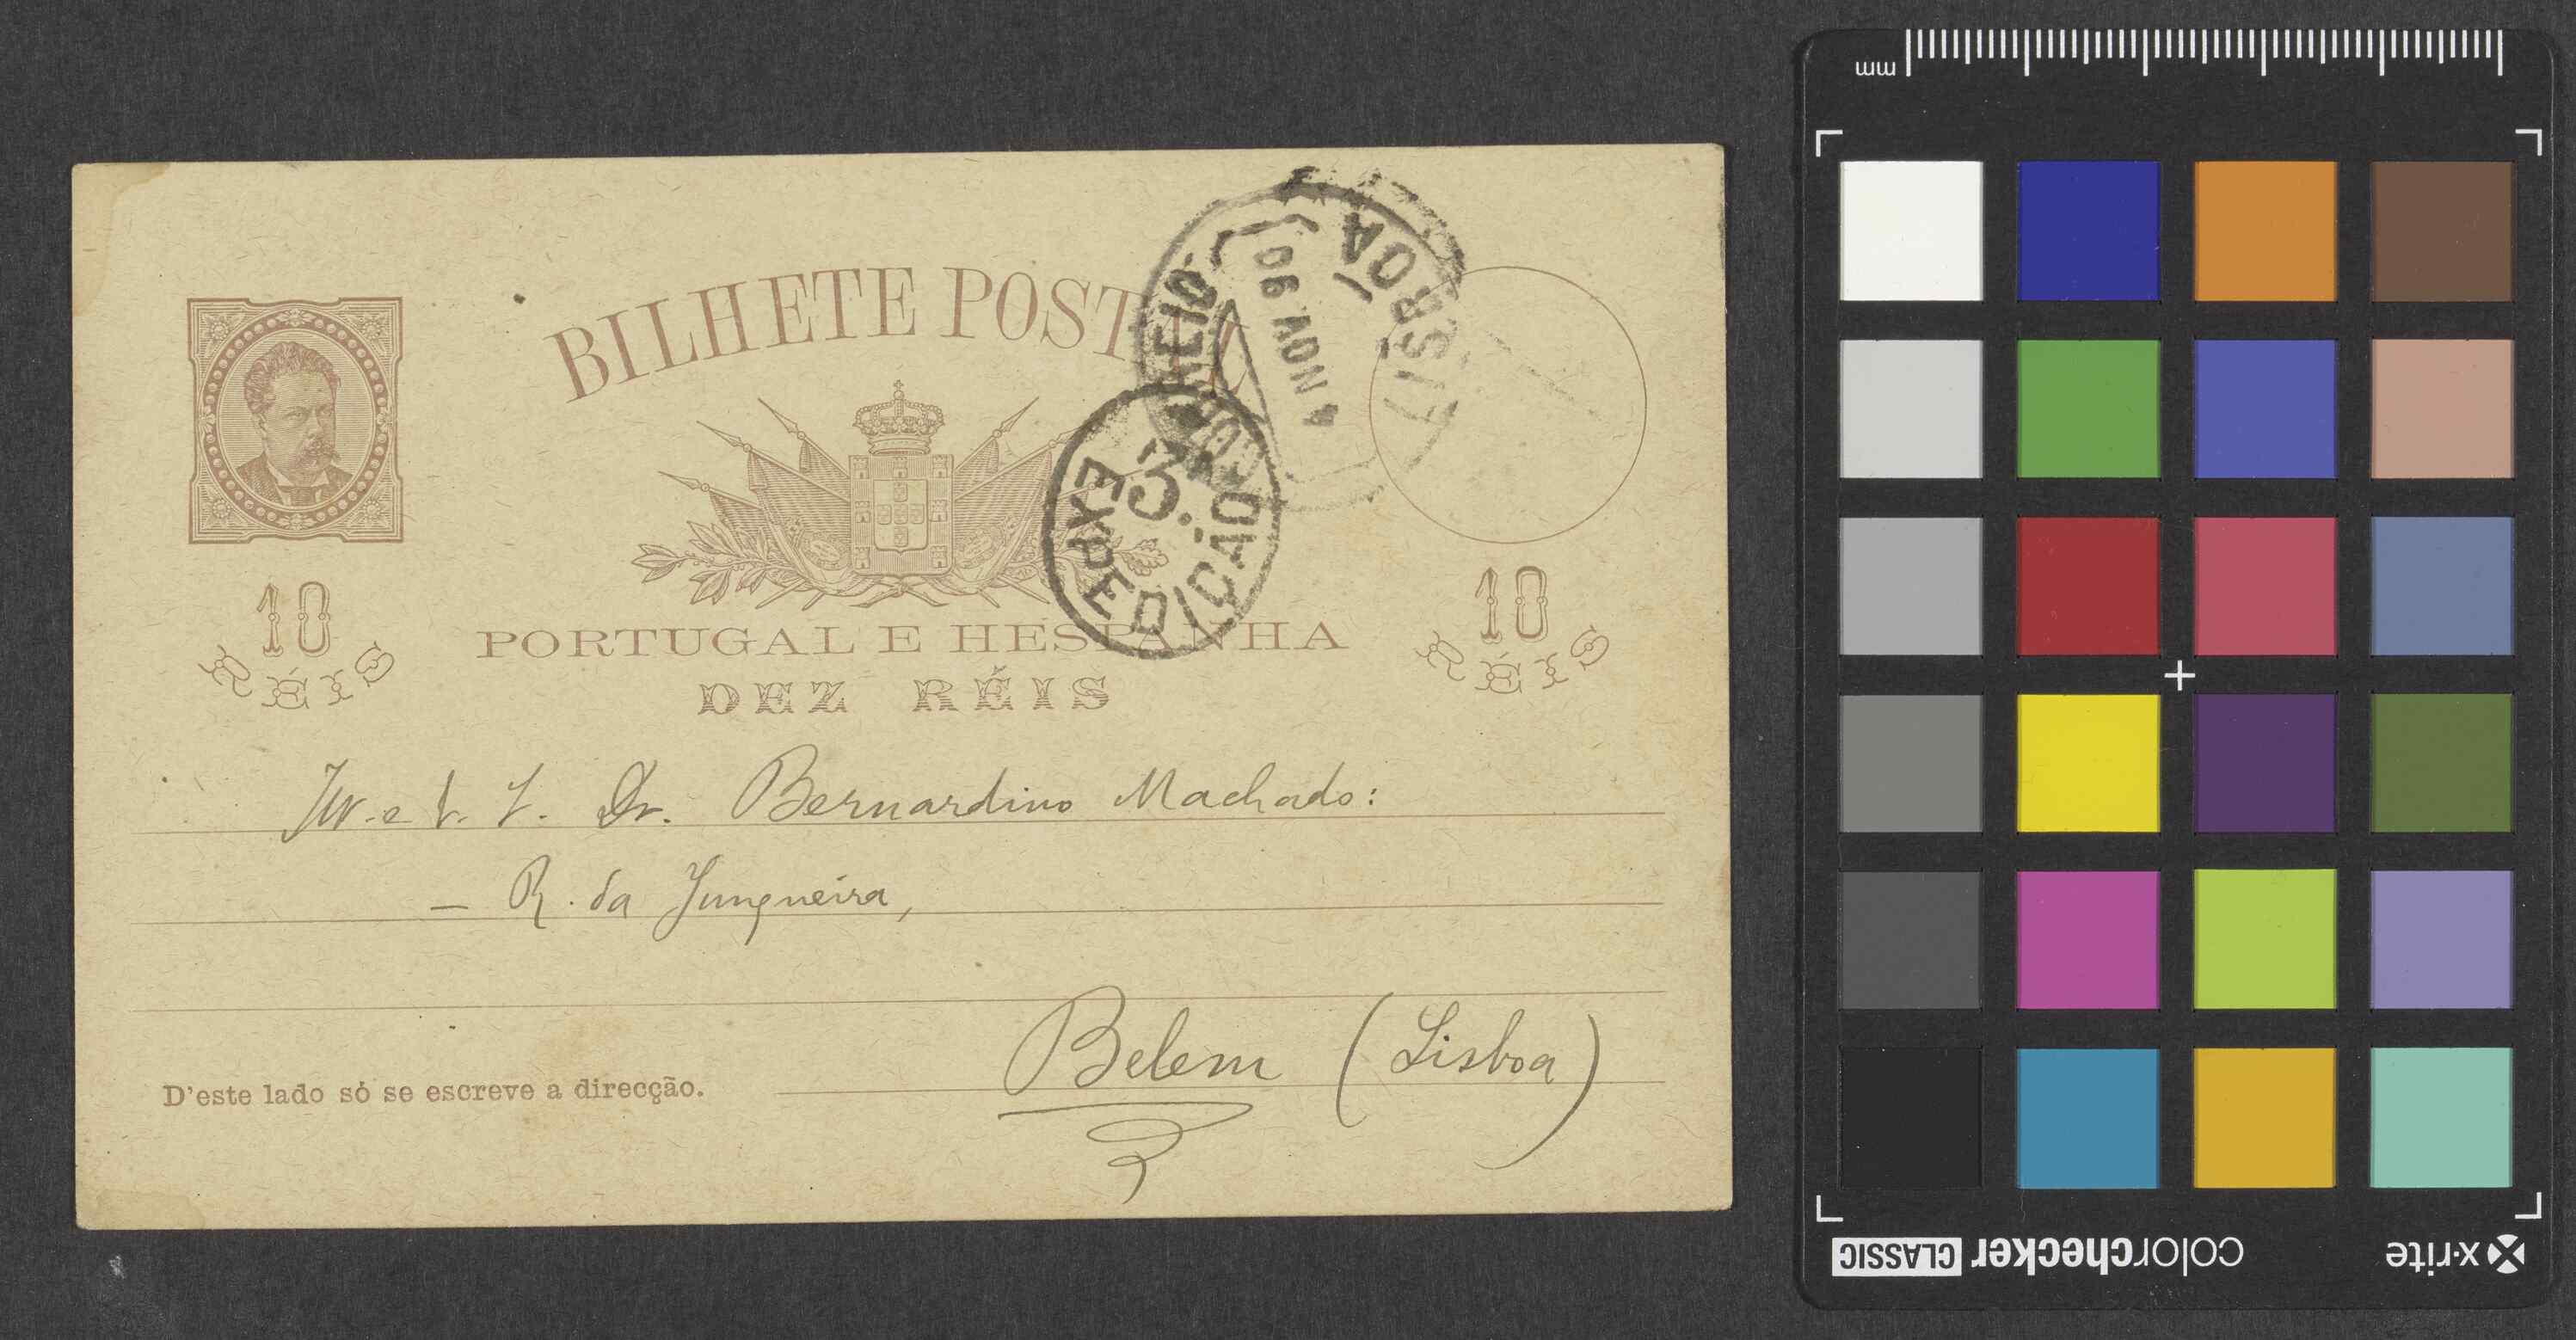 BILHETE POSTAL
CORREIO
LISBOA
4 NOV. 90
3.
EXPEDIÇÃO
10
RÉIS
PORTUGAL E HESPANHA
10
RÉIS
DEZ RÉIS
Dr. Bernardino Machado:
— R. da Junqueira,
Belem (Lisboa)
D'este lado só se escreve a direcção.
mm
colorchecker CLASSIC
x-rite